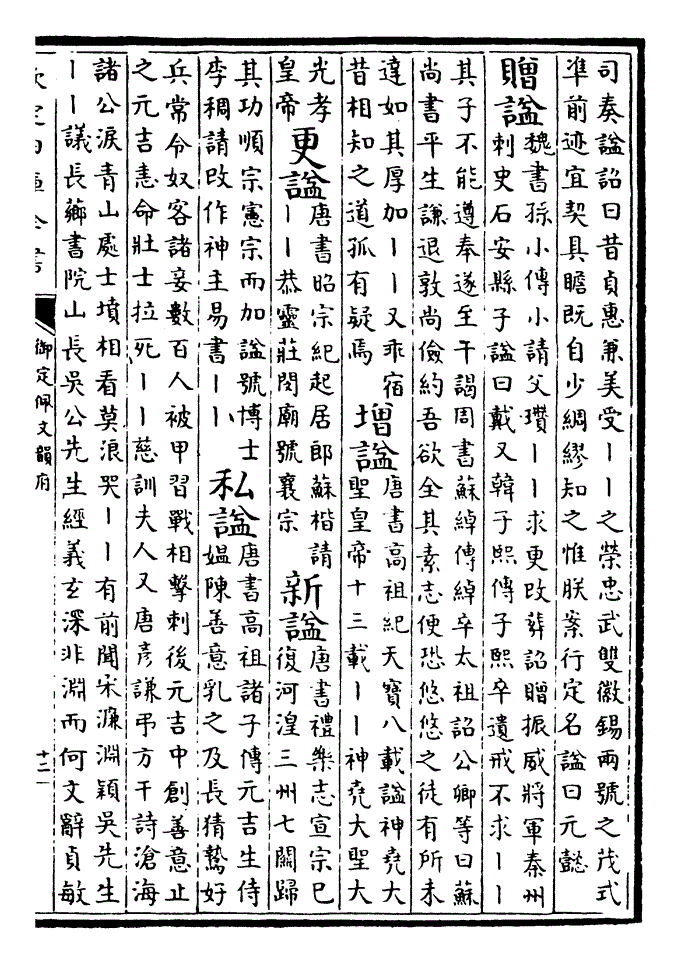 司奏諡詔曰昔貞惠兼美受丨丨之榮忠武雙徽錫兩號之茂式
凖前迹宜契具瞻既自少綢繆知之惟朕案行定名諡曰元懿
贈諡
魏書孫小傳小請父瓚丨丨求更改葬詔贈振威將軍秦州
刺史石安縣子諡曰戴又韓子熙傳子熙卒遺戒不求丨丨
其子不能遵奉遂至干謁周書蘇綽傳綽卒太祖詔公卿等曰蘇
尚書平生謙退敦尚儉約吾欲全其素志便恐悠悠之徒有所未
達如其厚加丨丨又乖宿
昔相知之道孤有疑焉
增諡
唐書高祖紀天寶八載諡神堯大
聖皇帝十三載丨丨神堯大聖大
光孝
皇帝
更諡
唐書昭宗紀起居郎蘇楷請
丨丨恭靈莊閔廟號襄宗
新諡
唐書禮樂志宣宗已
復河湟三州七關歸
其功順宗憲宗而加諡號博士
李稠請改作神主易書丨丨
私諡
唐書高祖諸子傳元吉生侍
媪陳善意乳之及長猜鷙好
兵常令奴客諸妾數百人被甲習戰相擊刺後元吉中創善意止
之元吉恚命壯士拉死丨丨慈訓夫人又唐彦謙弔方干詩滄海
諸公淚青山處士墳相看莫浪哭丨丨有前聞宋濂淵穎吳先生
丨丨議長薌書院山長吳公先生經義玄深非淵而何文辭貞敏
欽定四庫全書
御定佩文韻府
十二